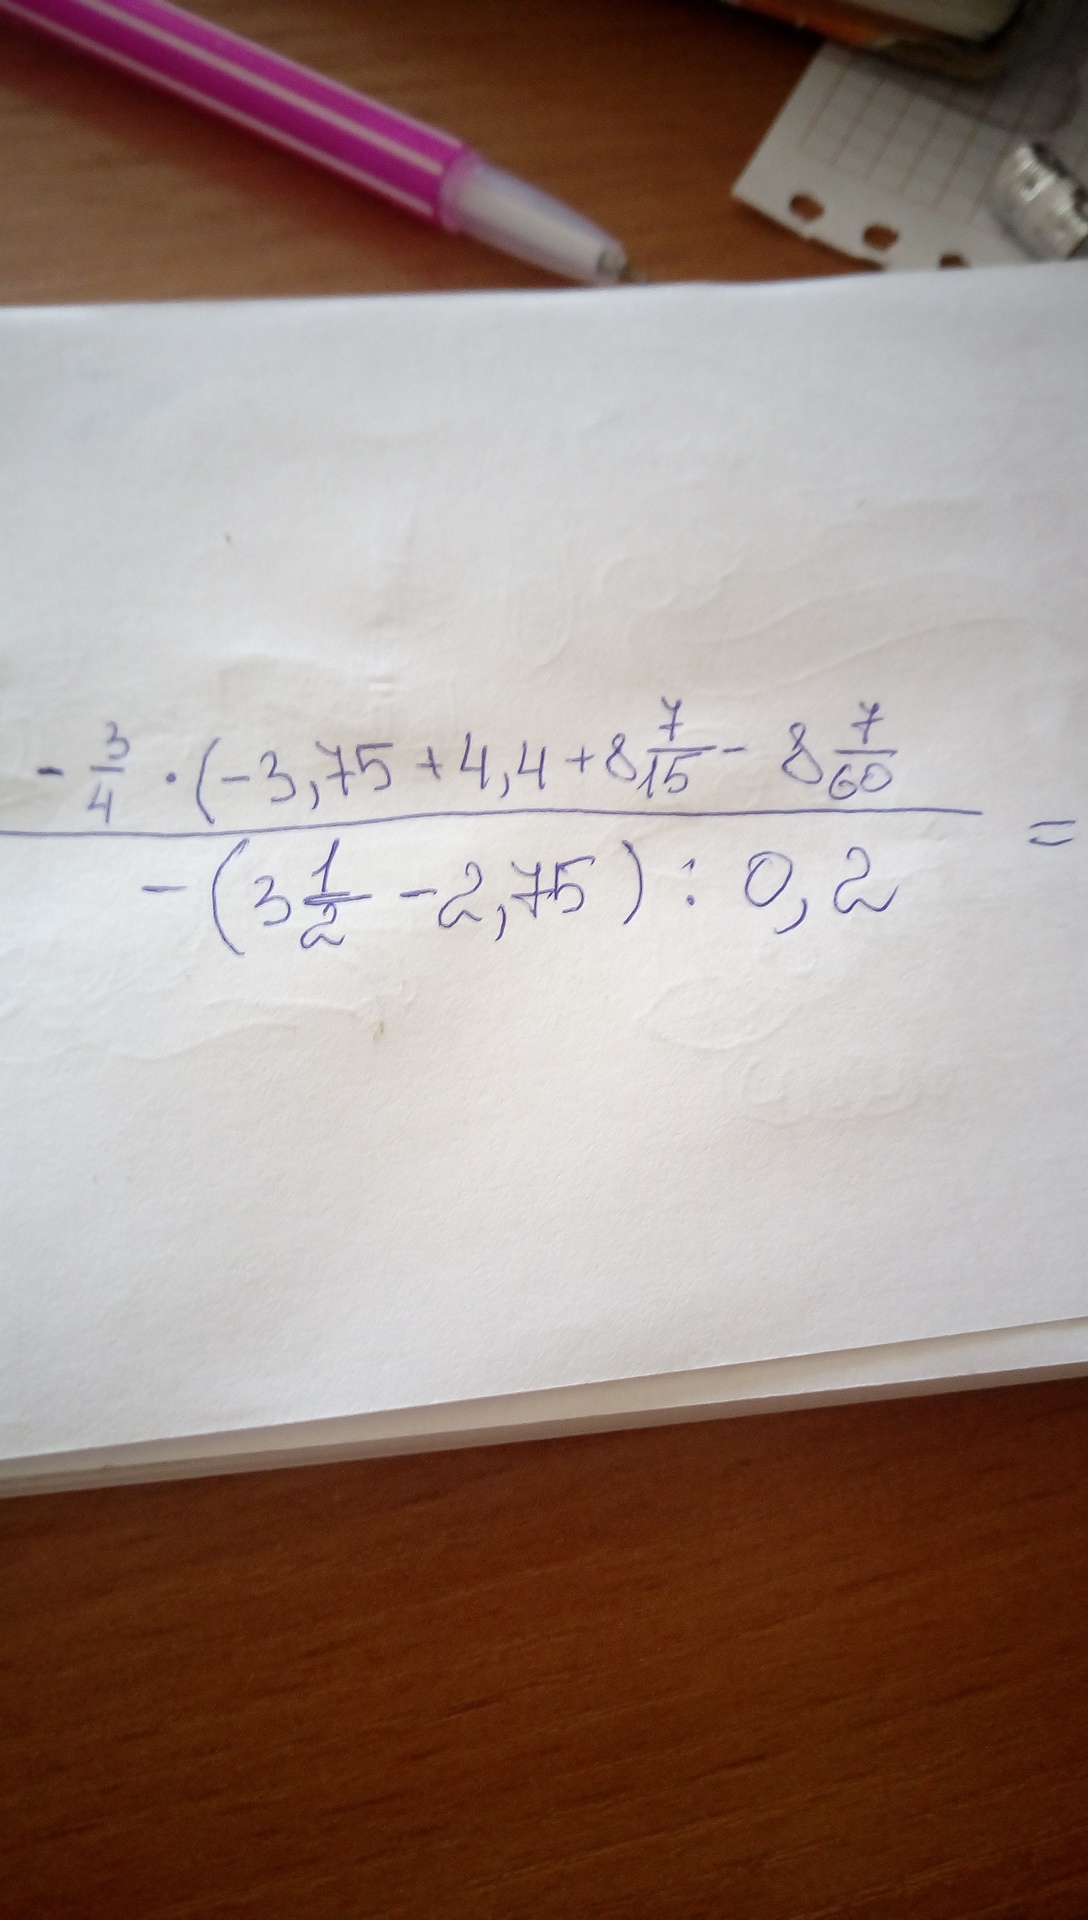 - 3/4 · (-3,75 + 4,4 + 8 7/15 - 8 7/60
-(3 1/2 - 2,75) : 0,2 =